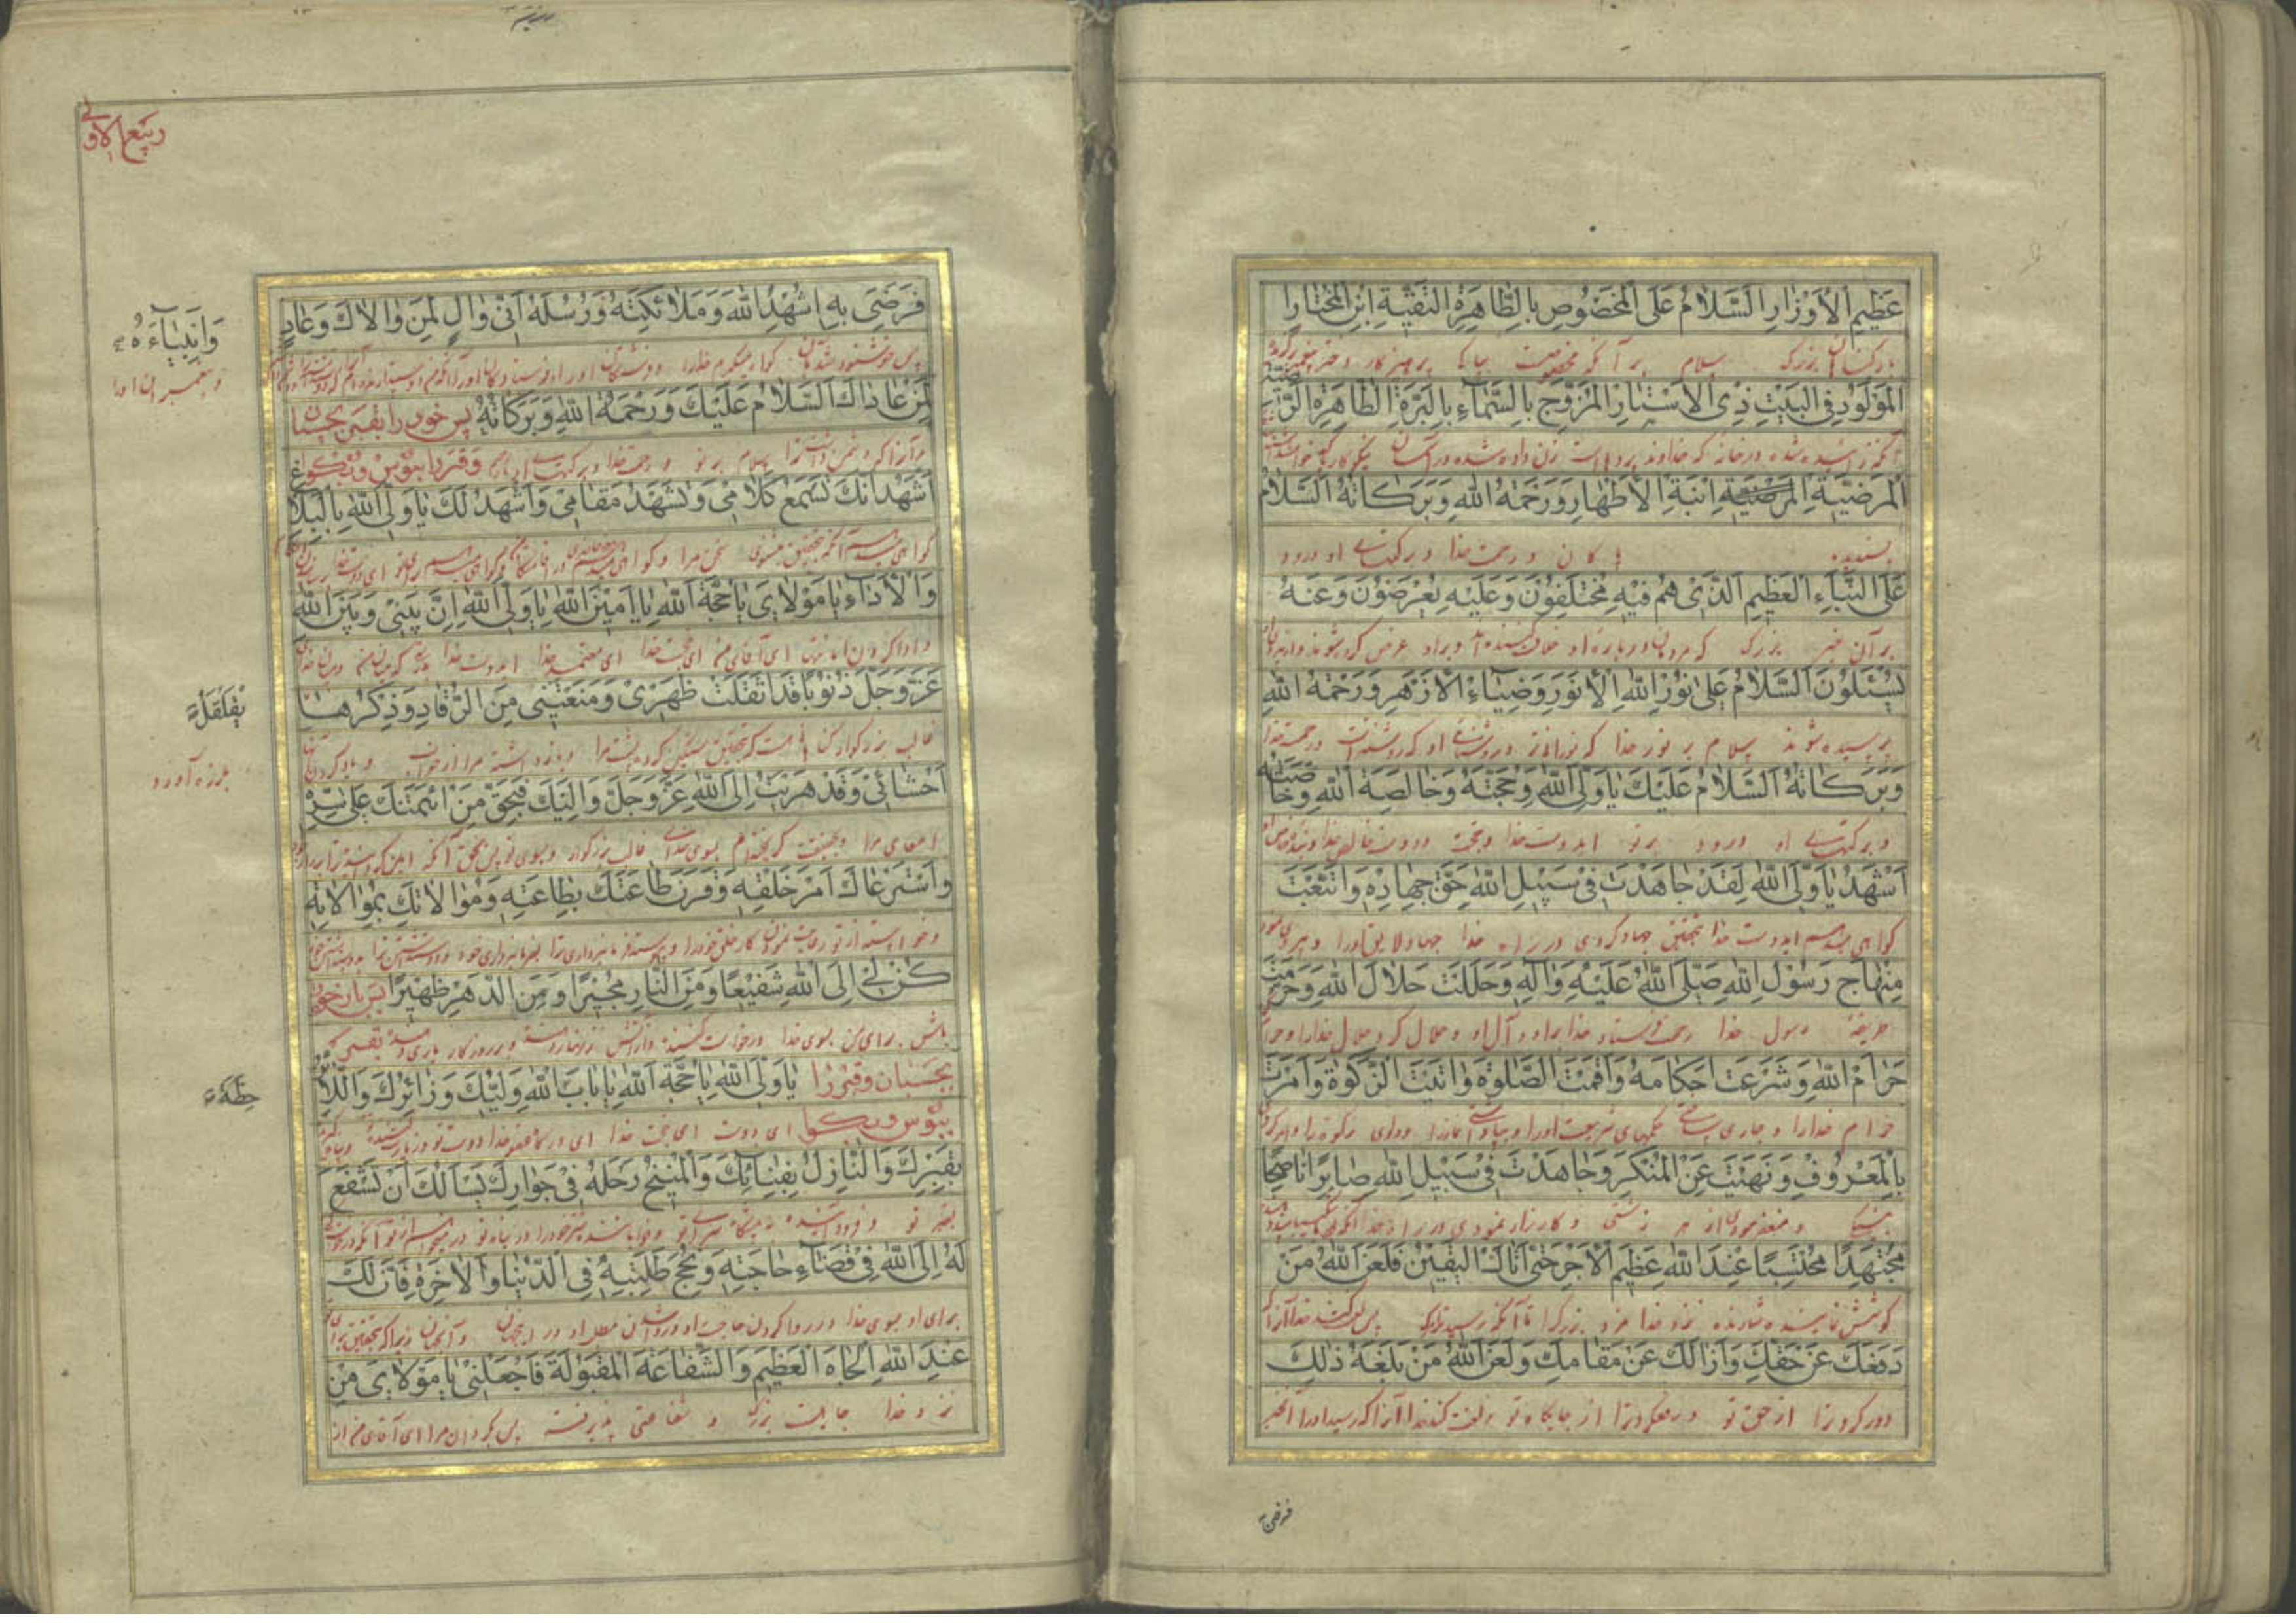 عَظِيمِ الْأَوْزَارِ السَّلَامُ عَلَى الْمَخْصُوصِ بِالطَّاهِرَةِ التَّقِيَّةِ ابْنَةِ الْمُخْتَارِ
بارکننان بزرک سلام بر آنکه مخصوصست بپاک پرهیزکار دختر
الْمَوْلُودِ فِي الْبَيْتِ ذِي الْأَسْتَارِ الْمُزَوَّجِ بِالسَّمَاءِ بِالْبَرَّةِ الطَّاهِرَةِ الرَّضِيَّةِ
آنکه زائیده شده در خانه که خداوند پرده‌ها است زن داده شده در آسمان
الْمَرْضِيَّةِ ابْنَةِ الْأَطْهَارِ وَرَحْمَةُ اللَّهِ وَبَرَكَاتُهُ السَّلَامُ
پسندیده پاکان و رحمت خدا و برکتهای او درود
عَلَى النَّبَاءِ الْعَظِيمِ الَّذِي هُمْ فِيهِ مُخْتَلِفُونَ وَعَلَيْهِ يُعْرَضُونَ وَعَنْهُ
بر آن خبر بزرک که مردمان درباره او خلاف کننده‌اند و بر او عرض کرده شوند و از
يُسْئَلُونَ السَّلَامُ عَلَى نُورِ اللَّهِ الْأَنْوَرِ وَضِيَاءِ الْأَزْهَرِ وَرَحْمَةُ اللَّهِ
پرسیده شوند سلام بر نور خدا که نورانی‌تر و روشنائی او که روشنتر است و رحمت خدا
وَبَرَكَاتُهُ السَّلَامُ عَلَيْكَ يَا وَلِيَّ اللَّهِ وَحُجَّتَهُ وَخَالِصَةَ اللَّهِ وَخَاصَّتَهُ
و برکتهای او درود بر تو ایدوست خدا و حجت و دوست خالص خدا
أَشْهَدُ يَا وَلِيَّ اللَّهِ لَقَدْ جَاهَدْتَ فِي سَبِيلِ اللَّهِ حَقَّ جِهَادِهِ وَاتَّبَعْتَ
کواهی میدهم ایدوست خدا بتحقیق جهاد کردی در راه خدا جهاد لایق او را و پیروی
مِنْهَاجَ رَسُولِ اللَّهِ صَلَّى اللَّهُ عَلَيْهِ وَآلِهِ وَحَلَّلْتَ حَلَالَ اللَّهِ وَحَرَّمْتَ
طریقه رسول خدا رحمت فرستاد خدا بر او و آل او و حلال کردی حلال خدا را و حرام
حَرَامَ اللَّهِ وَشَرَعْتَ أَحْكَامَهُ وَأَقَمْتَ الصَّلَوةَ وَآتَيْتَ الزَّكَوةَ وَأَمَرْتَ
حرام خدا را و جاری ساختی حکمهای شریعت او را و بپا داشتی نماز را و دادی زکوة را و امر کردی
بِالْمَعْرُوفِ وَنَهَيْتَ عَنِ الْمُنْكَرِ وَجَاهَدْتَ فِي سَبِيلِ اللَّهِ صَابِرًا نَاصِحًا
بنیکی و منع فرمودی از هر زشتی و کارزار نمودی در راه خدا
مُجْتَهِدًا مُحْتَسِبًا عِنْدَ اللَّهِ عَظِيمَ الْأَجْرِ حَتَّى أَتَاكَ الْيَقِينُ فَلَعَنَ اللَّهُ مَنْ
کوشش نماینده شمارنده نزد خدا مزد بزرک را تا آنکه رسید ترا مرک پس لعنت کند خدا آنرا که
دَفَعَكَ عَنْ حَقِّكَ وَأَزَالَكَ عَنْ مَقَامِكَ وَلَعَنَ اللَّهُ مَنْ بَلَغَهُ ذَلِكَ
دور کرد ترا از حق تو و رفع کرد ترا از جایکاه تو و لعنت کند خدا آنرا که رسید او را آنخبر
فرضی
ربیع الاولی
فَرَضِيَ بِهِ اشْهِدُ اللَّهَ وَمَلَائِكَتَهُ وَرُسُلَهُ أَنِّي وَالٍ لِمَنْ وَالَاكَ وَعَادٍ
وَأَنْبِيَاءَهُ
پس خوشنود شد بآن کواه میکیرم خدا را و فرشتکان او را و فرستادکان او را
و پیغمبران او را
لِمَنْ عَادَاكَ السَّلَامُ عَلَيْكَ وَرَحْمَةُ اللَّهِ وَبَرَكَاتُهُ پس خود را بقبر بچسبان
مر آنرا که دشمن داشت ترا سلام بر تو و رحمت خدا و برکتهای او باد و قبر را ببوس و بگو
أَشْهَدُ أَنَّكَ تَسْمَعُ كَلَامِي وَتَشْهَدُ مَقَامِي وَأَشْهَدُ لَكَ يَا وَلِيَّ اللَّهِ بِالْبَلَاغِ
کواهی میدهم آنکه بتحقیق میشنوی سخن مرا و
وَالْأَدَاءِ يَا مَوْلَايَ يَا حُجَّةَ اللَّهِ يَا أَمِينَ اللَّهِ يَا وَلِيَّ اللَّهِ إِنَّ بَيْنِي وَبَيْنَ اللَّهِ
و ادا کردن امانتها ای آقای من ای حجت خدا ای معتمد خدا ایدوست خدا بدرستیکه میان من و میان خدای
عَزَّ وَجَلَّ ذُنُوبًا قَدْ أَثْقَلَتْ ظَهْرِي وَمَنَعَتْنِي مِنَ الرُّقَادِ وَذِكْرُهَا
يُقَلْقِلُ
غالب بزرکوار کناهانست که بتحقیق سنکین کرده پشت مرا و بازداشته مرا از خواب و یاد کردن آنها
بلرزه آورد
أَحْشَائِي وَقَدْ هَرَبْتُ إِلَى اللَّهِ عَزَّ وَجَلَّ وَإِلَيْكَ فَبِحَقِّ مَنِ ائْتَمَنَكَ عَلَى سِرِّهِ
امعای مرا و بحقیقت کریخته‌ام بسوی خدای غالب بزرکوار و بسوی تو پس بحق آنکه
وَاسْتَرْعَاكَ أَمْرَ خَلْقِهِ وَقَرَنَ طَاعَتَكَ بِطَاعَتِهِ وَمُوَالَاتَكَ بِمُوَالَاتِهِ
كُنْ لِي إِلَى اللَّهِ شَفِيعًا وَمِنَ النَّارِ مُجِيرًا وَمِنَ الدَّهْرِ ظَهِيرًا پس باز خود را
باش برای من بسوی خدا درخواست کننده و از آتش زنهار دهنده و بر روزکار یاری دهنده بقبر
بچسبان و قبر را يَا وَلِيَّ اللَّهِ يَا حُجَّةَ اللَّهِ يَا بَابَ اللَّهِ وَلِيُّكَ وَزَائِرُكَ وَاللَّائِذُ
حِطَّةٍ
ببوس و بگو ای دوست ای حجت خدا ای درکاه خدا دوست تو و زیارت کننده
بِقَبْرِكَ وَالنَّازِلُ بِفِنَائِكَ وَالْمُنِيخُ رَحْلَهُ فِي جِوَارِكَ يَسْأَلُكَ أَنْ تَشْفَعَ
بقبر تو و فرود آینده به پیشکاه سرای تو
لَهُ إِلَى اللَّهِ فِي قَضَاءِ حَاجَتِهِ وَنُجْحِ طَلِبَتِهِ فِي الدُّنْيَا وَالْآخِرَةِ فَإِنَّ لَكَ
برای او بسوی خدا در روا کردن حاجت او و روا شدن مطلب او در اینجهان و آنجهان زیرا که بتحقیق برای تو
عِنْدَ اللَّهِ الْجَاهَ الْعَظِيمَ وَالشَّفَاعَةَ الْمَقْبُولَةَ فَاجْعَلْنِي يَا مَوْلَايَ مِنْ
نزد خدا جاهیست بزرک و شفاعتی پذیرفته پس بکردان مرا ای آقای من از